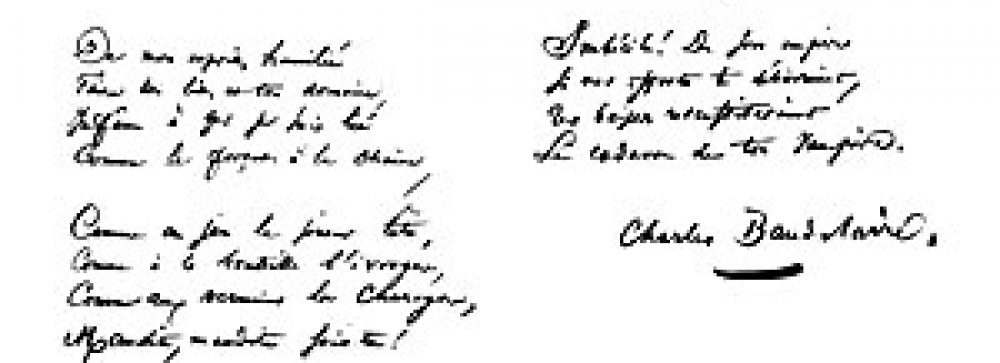 De mon esprit humilié
Faire ton lit et ton domaine,
Infâme à qui je suis lié
Comme le forçat à la chaîne,
Comme au jeu le joueur têtu,
Comme à la bouteille l'ivrogne,
Comme aux vermines la charogne,
Maudite, maudite sois-tu!
Imbécile! De son empire
Si nos efforts te délivraient,
Tes baisers ressusciteraient
Le cadavre de ton Vampire.
Charles Baudelaire.